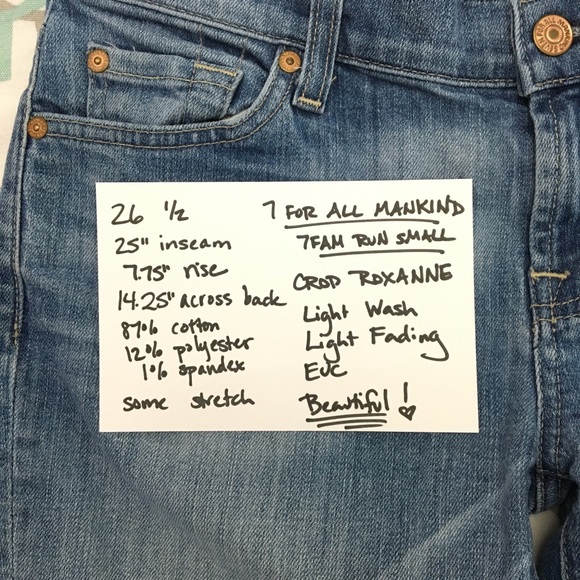 26 1/2
25" inseam
7.75" rise
14.25" across back
87% cotton
12% polyester
1% spandex
some stretch
7 FOR ALL MANKIND
7FAM RUN SMALL
CROP ROXANNE
Light Wash
Light Fading
EUC
Beautiful!
SEVEN FOR ALL MANKIND